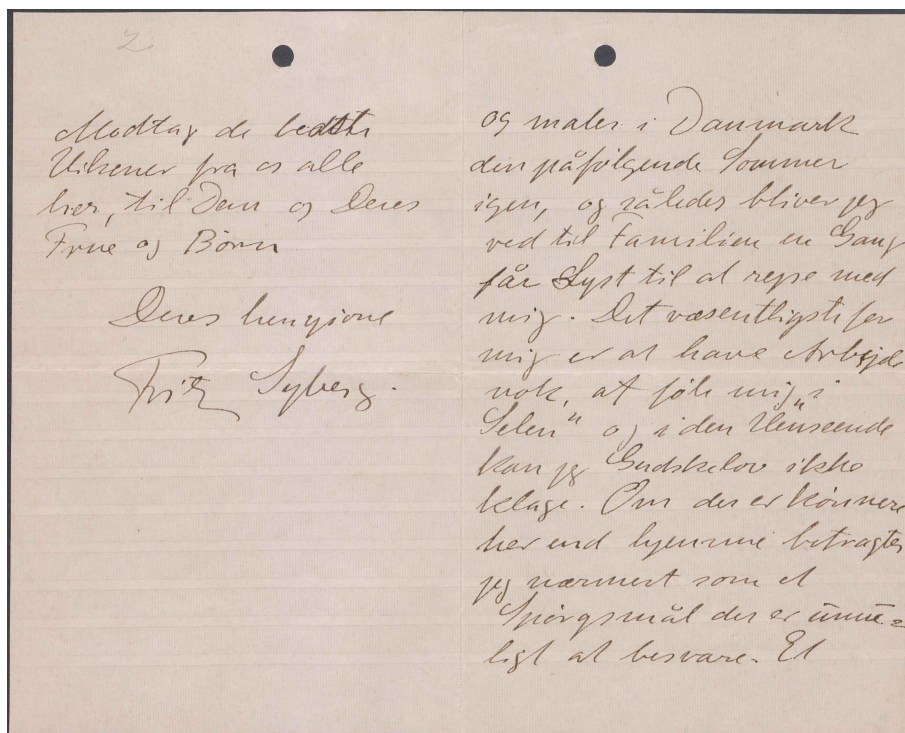 2
Modtag de bedste
Hilsener fra os alle
her, til Dem og Deres
Frue og Børn
Deres hengivne
Fritz Syberg.
og maler i Danmark
den påfølgende Sommer
igen, og således bliver jeg
ved til Familien en Gang
får Lyst til at rejse med
mig. Det væsentligste for
mig er at have Arbejde
nok, at føle mig „i
Selen" og i den Henseende
kan jeg Gudskelov ikke
klage. Om der er kønnere
her end hjemme betragter
jeg nærmest som et
Spørgsmål der er umu=
ligt at besvare. Et